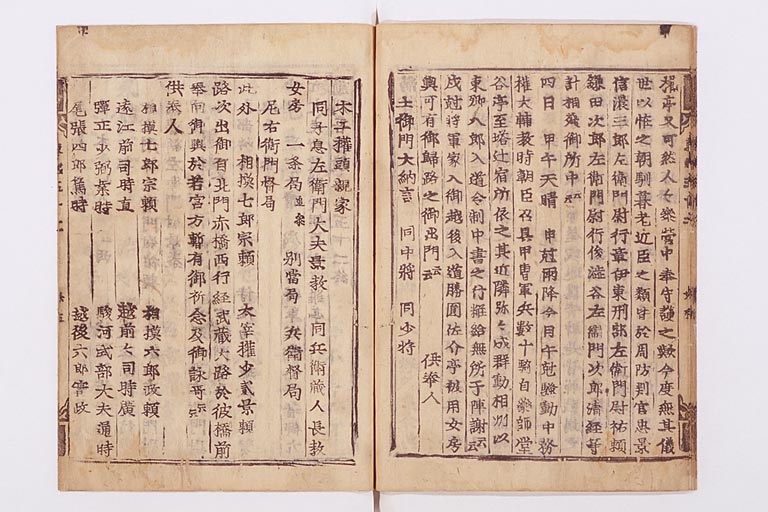 世以怪之朝馴暮老近臣之類
信濃三郎左衛門尉行章伊東刑部左衛門尉祐頼
鎌田次郎左衛門尉行俊澁谷左衛門次郎清経等
計相殘御所中云云
四日 甲午天晴 申尅雨降今日午尅騒動中務
權大輔教時朝臣召具甲冑軍兵數十騎自藥師堂
谷亭至塔辻宿所依之其近隣弥以成群動相州以
東郷八郎入道令制中書之行粧給無所于陳謝云云
戌尅將軍家入御越後入道勝圓佐介亭被用女房
輿可有御歸路之御出門云云
供奉人
土御門大納言 同中將 同少將
木工權頭親家
同子息左衛門大夫景教 同兵衛蔵人長教
女房 一条局 別當局 兵衛督局
尼右衛門督局
此外 相模七郎宗頼 太宰權少貳景頼
路次出御自北門赤橋西行経武蔵大路於彼橋前
奉向御輿於若宮方暫有御祈念及御詠哥云云
供奉人
相模七郎宗頼 相摸六郎政頼
遠江前司時直 越前前司時廣
彈正少弼業時 駿河式部大夫通時
尾張四郎篤時 越後六郎實政